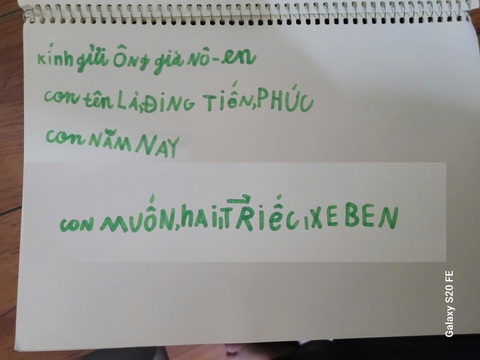 kính gửi Ông già Nô-en
con tên Là,ĐiNG TIẾN,PHÚC
con NĂM NAY
con MUỐN,hAI,TRIẾC,XE BEN
Galaxy S20 FE